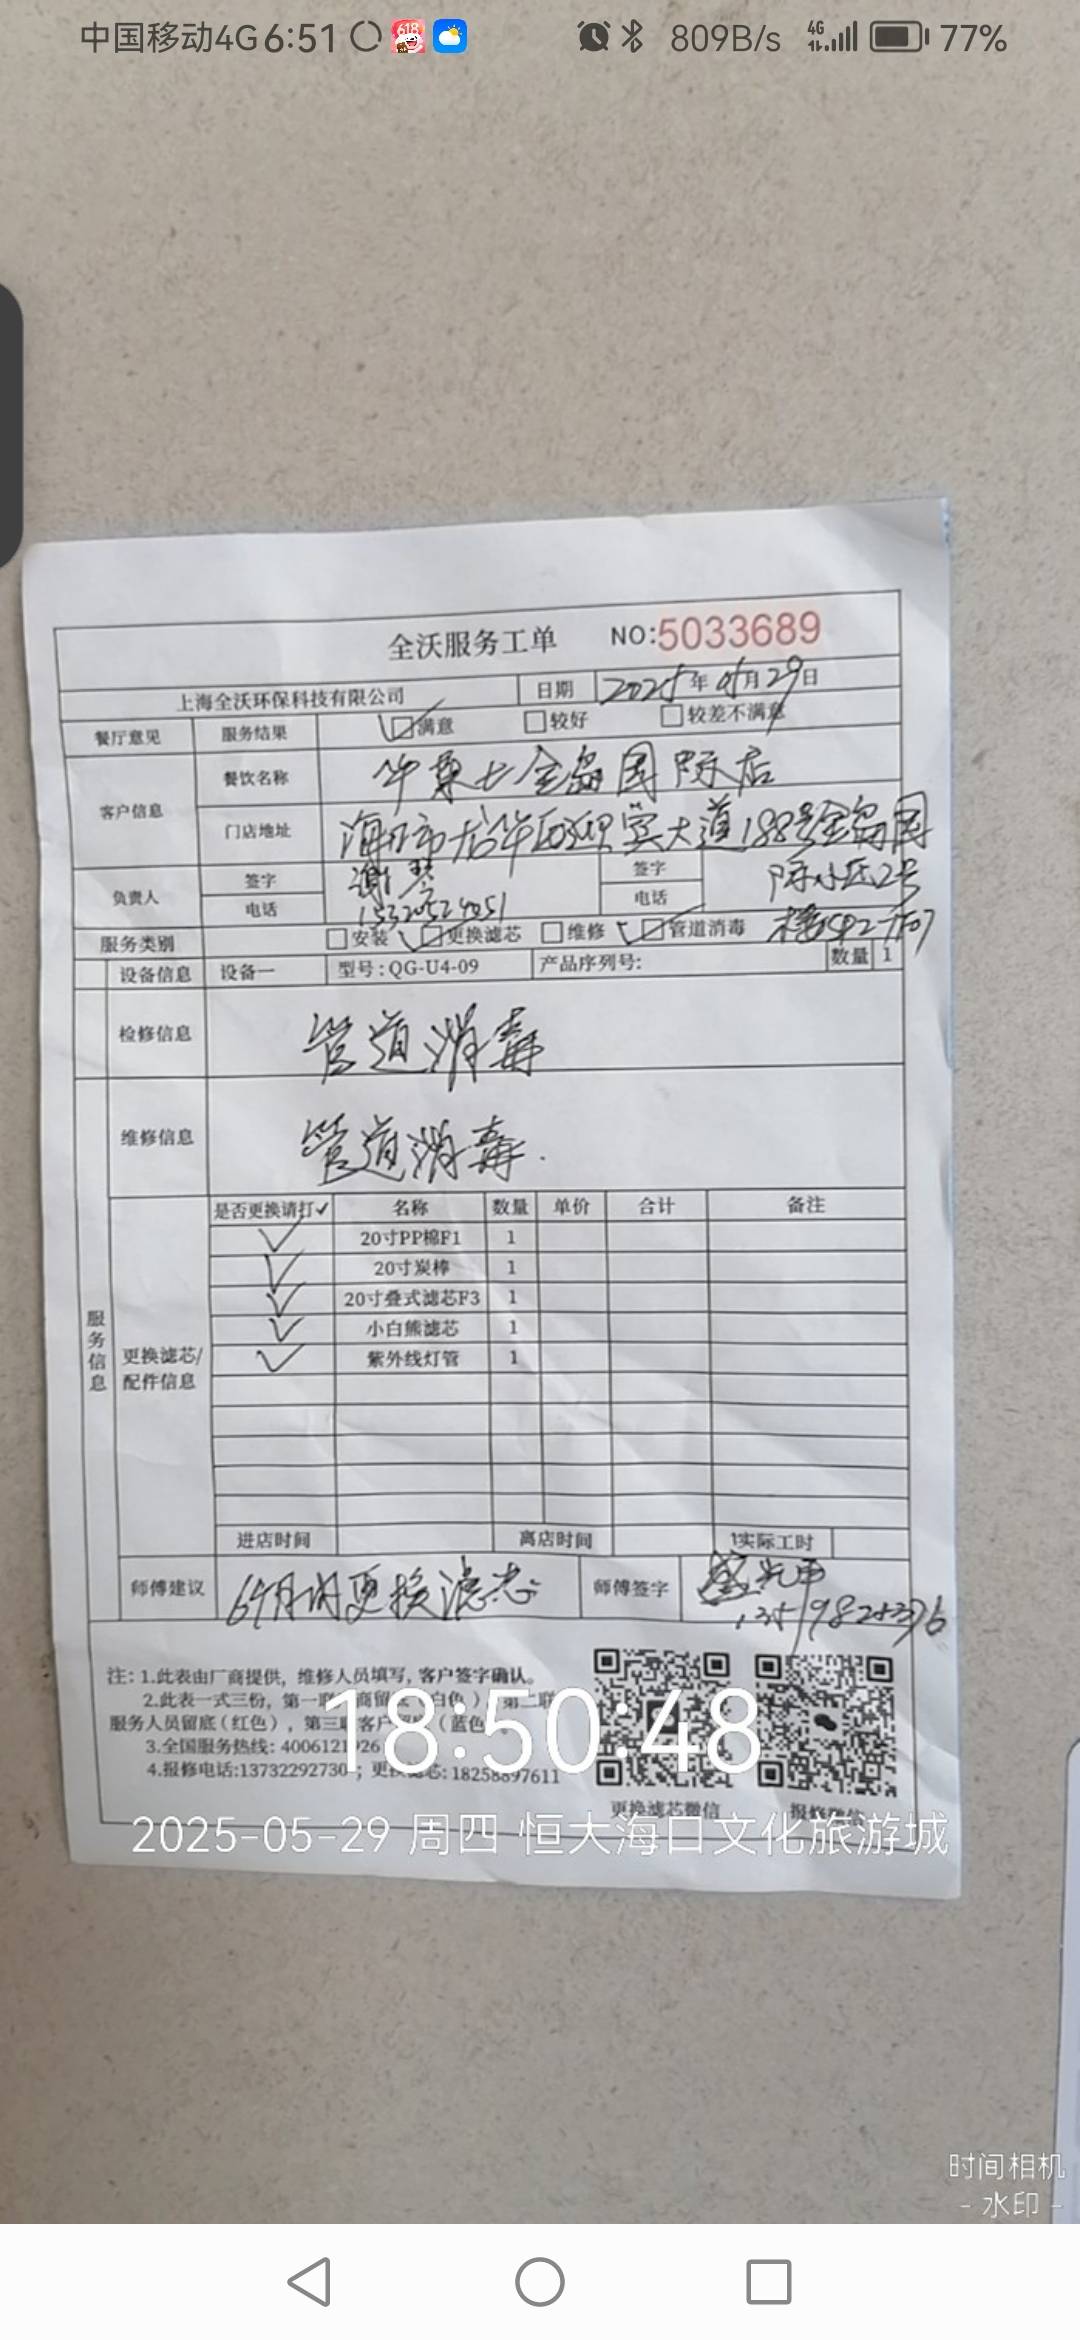 中国移动4G 6:51 809B/s 4G 77%
全沃服务工单 NO:5033689
上海全沃环保科技有限公司 日期 2025年05月29日
餐厅意见 服务结果 满意 较好 较差不满意
客户信息 餐饮名称 华莱士金岛国际店
门店地址 海口市龙华区迎宾大道188号金岛国
际小区2号
楼
负责人 签字 谢琴 签字
电话 电话
服务类别 安装 更换滤芯 维修 管道消毒
设备信息 设备一 型号:QG-U4-09 产品序列号: 数量 1
检修信息 管道消毒
维修信息 管道消毒.
服务信息
更换滤芯/配件信息
是否更换请打✓ 名称 数量 单价 合计 备注
✓ 20寸PP棉F1 1
✓ 20寸炭棒 1
✓ 20寸叠式滤芯F3 1
✓ 小白熊滤芯 1
✓ 紫外线灯管 1
进店时间 离店时间 1实际工时
师傅建议 6个月内更换滤芯 师傅签字
注: 1.此表由厂商提供, 维修人员填写, 客户签字确认。
2.此表一式三份, 第一联 商留 白色), 第二联
服务人员留底(红色), 第三联客户 (蓝色
3.全国服务热线: 4006121926
4.报修电话:13732292730; 更换滤芯:18258897611
更换滤芯微信 报修微信
18:50:48
2025-05-29 周四 恒大海口文化旅游城
时间相机
- 水印 -